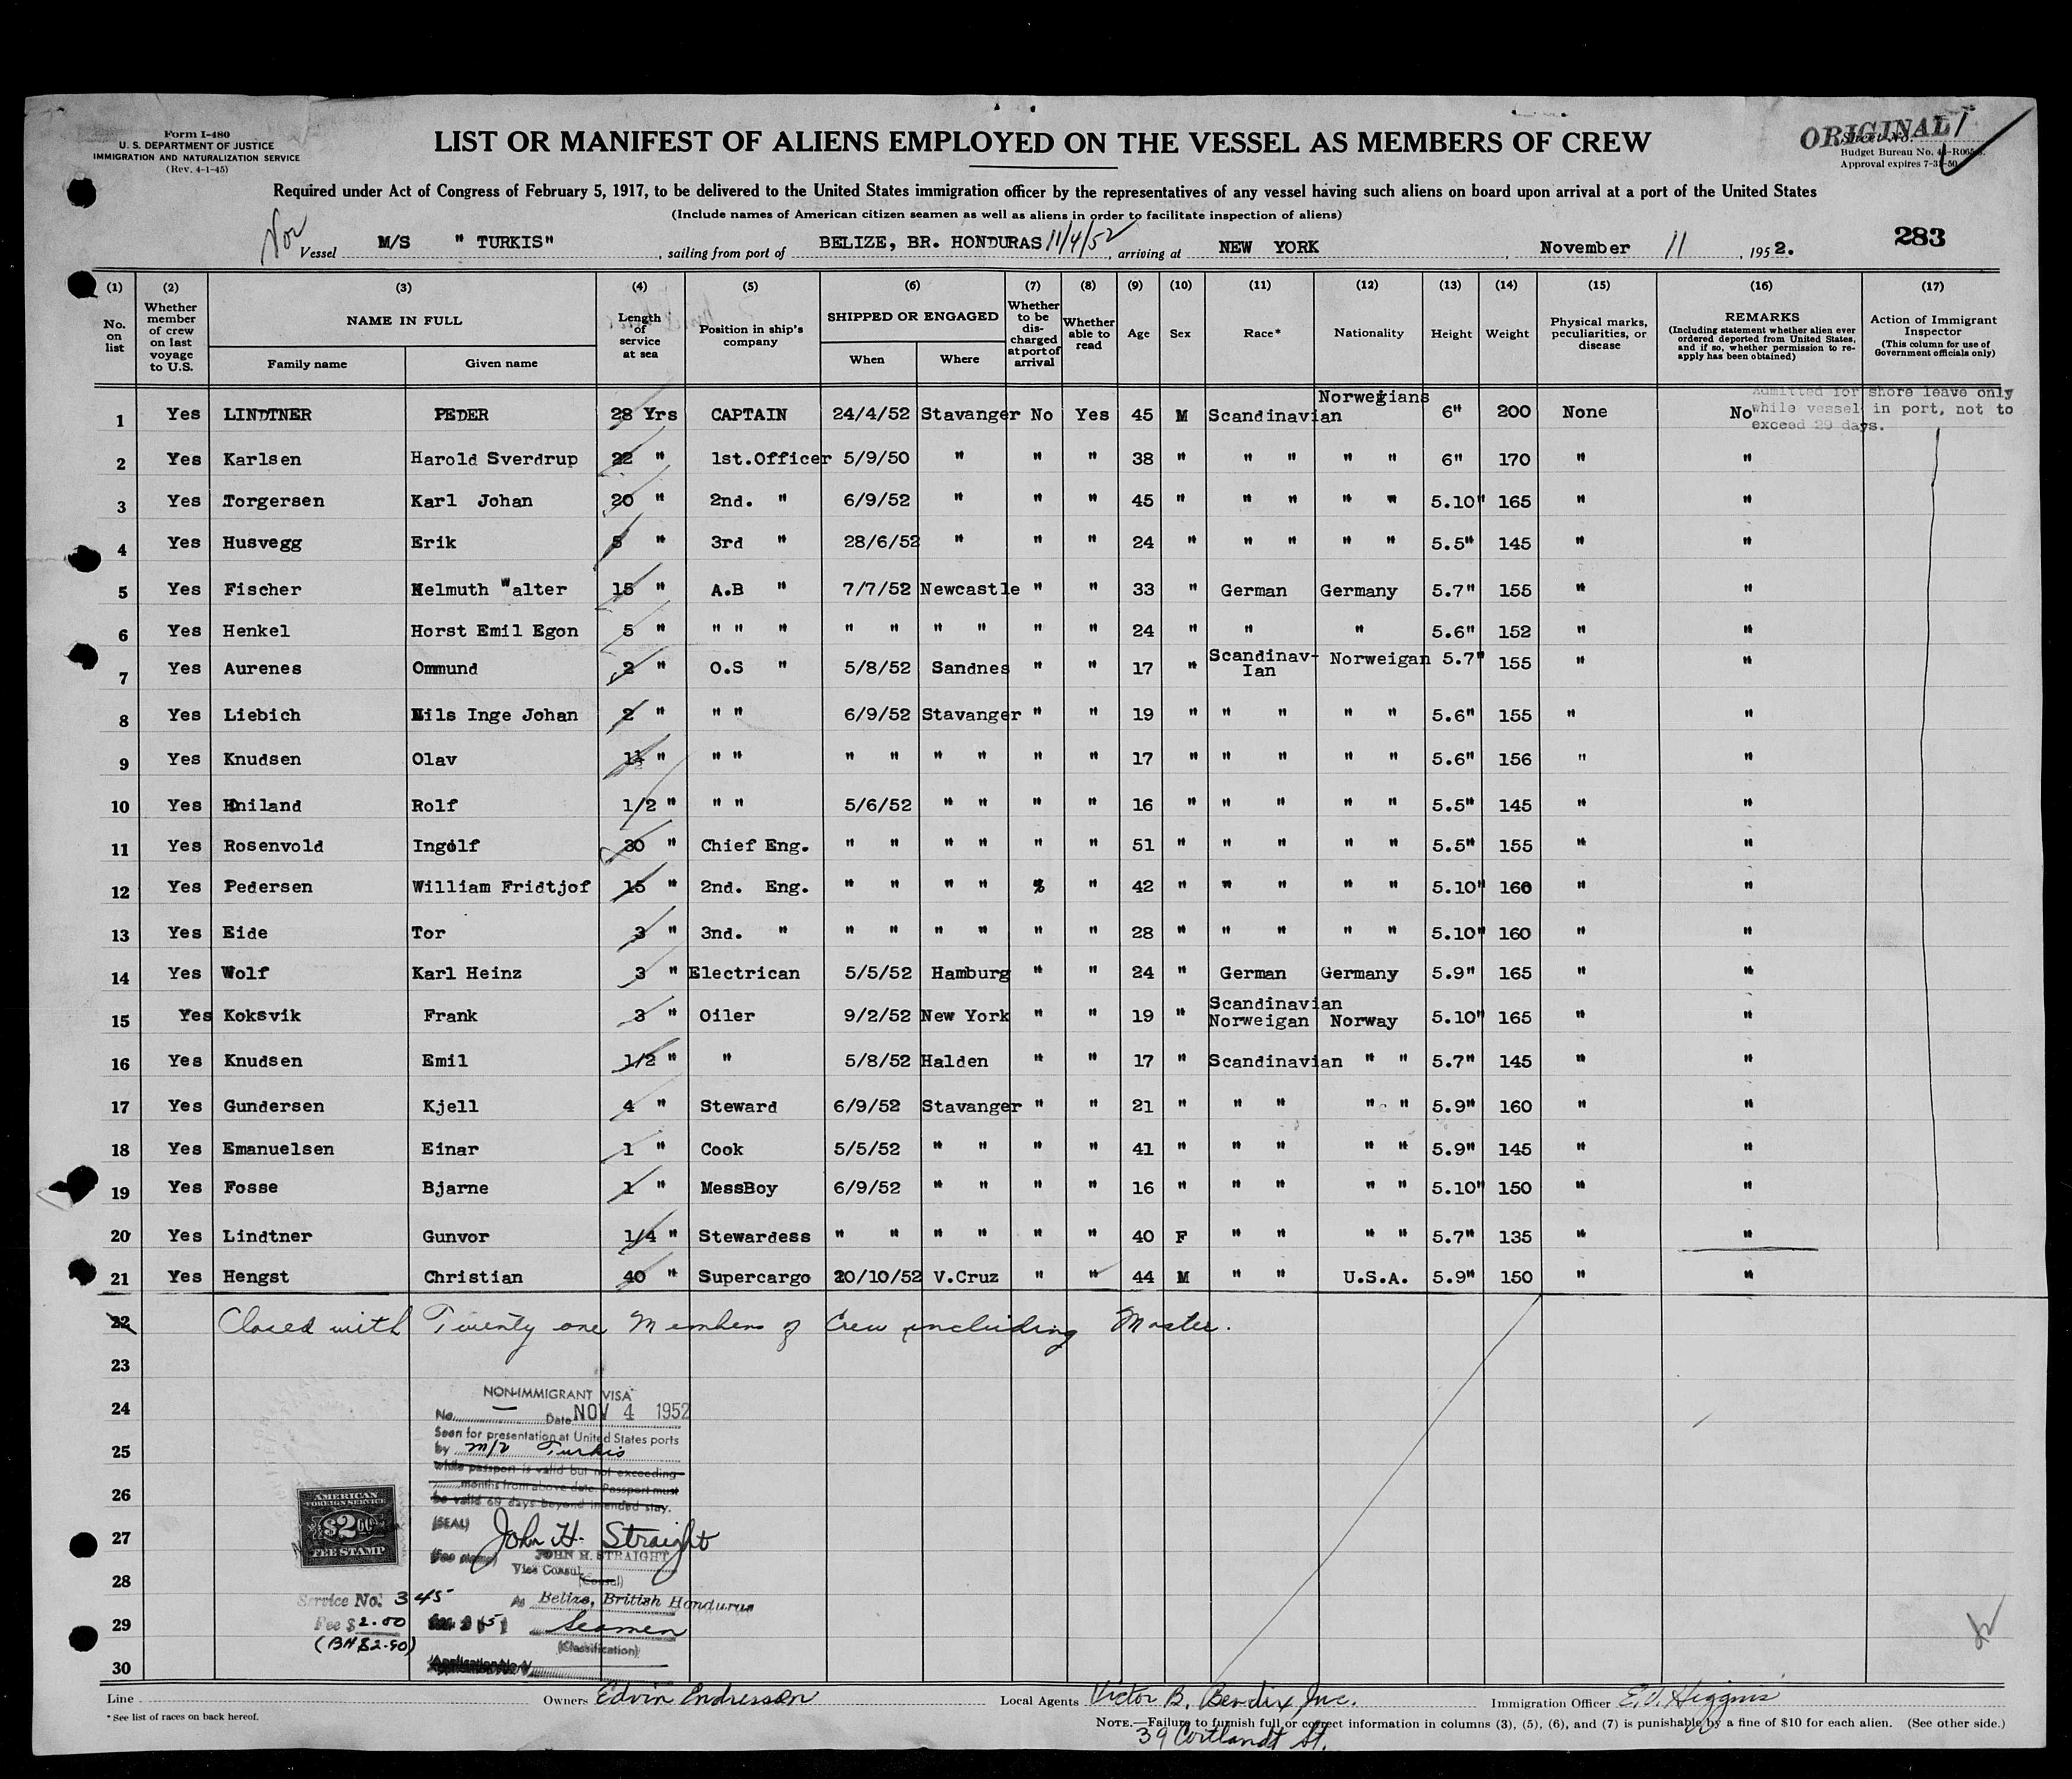 Form I-480
U. S. DEPARTMENT OF JUSTICE
IMMIGRATION AND NATURALIZATION SERVICE
(Rev. 4-1-45)
LIST OR MANIFEST OF ALIENS EMPLOYED ON THE VESSEL AS MEMBERS OF CREW
ORIGINAL
Sheet No. 1
Budget Bureau No.
Approval expires 7-31-50
Required under Act of Congress of February 5, 1917, to be delivered to the United States immigration officer by the representatives of any vessel having such aliens on board upon arrival at a port of the United States
(Include names of American citizen seamen as well as aliens in order to facilitate inspection of aliens)
Nor
Vessel M/S " TURKIS", sailing from port of BELIZE, BR. HONDURAS 11/4/52, arriving at NEW YORK, November 11, 1952.
283
(1) (2) (3) (4) (5) (6) (7) (8) (9) (10) (11) (12) (13) (14) (15) (16) (17)
No. on list
Whether member of crew on last voyage to U.S.
NAME IN FULL
Family name
Given name
Length of service at sea
Position in ship's company
SHIPPED OR ENGAGED
When
Where
Whether to be discharged at port of arrival
Whether able to read
Age
Sex
Race*
Nationality
Height
Weight
Physical marks, peculiarities, or disease
REMARKS
(Including statement whether alien ever ordered deported from United States, and if so, whether permission to reapply has been obtained)
Action of Immigrant Inspector
(This column for use of Government officials only)
Admitted for shore leave only
while vessel in port, not to
exceed 29 days.
1 Yes LINDTNER PEDER 28 Yrs CAPTAIN 24/4/52 Stavanger No Yes 45 M Scandinavian Norwegians 6" 200 None No
2 Yes Karlsen Harold Sverdrup 22 " 1st.Officer 5/9/50 " " " 38 " " " " " 6" 170 " "
3 Yes Torgersen Karl Johan 20 " 2nd. " 6/9/52 " " " 45 " " " " " 5.10" 165 " "
4 Yes Husvegg Erik 5 " 3rd " 28/6/52 " " " 24 " " " " " 5.5" 145 " "
5 Yes Fischer Helmuth Walter 15 " A.B " 7/7/52 Newcastle " " 33 " German Germany 5.7" 155 " "
6 Yes Henkel Horst Emil Egon 5 " " " " " " " " " " 24 " " " 5.6" 152 " "
7 Yes Aurenes Ommund 2 " O.S " 5/8/52 Sandnes " " 17 " Scandinav-Ian Norweigan 5.7" 155 " "
8 Yes Liebich Nils Inge Johan 2 " " " 6/9/52 Stavanger " " 19 " " " " " 5.6" 155 " "
9 Yes Knudsen Olav 1½ " " " " " " " " " 17 " " " " " 5.6" 156 " "
10 Yes Hniland Rolf 1/2 " " " 5/6/52 " " " " 16 " " " " " 5.5" 145 " "
11 Yes Rosenvold Ingolf 30 " Chief Eng. " " " " " " 51 " " " " " 5.5" 155 " "
12 Yes Pedersen William Fridtjof 15 " 2nd. Eng. " " " " " " 42 " " " " " 5.10" 160 " "
13 Yes Eide Tor 3 " 3nd. " " " " " " " 28 " " " " " 5.10" 160 " "
14 Yes Wolf Karl Heinz 3 " Electrican 5/5/52 Hamburg " " 24 " German Germany 5.9" 165 " "
15 Yes Koksvik Frank 3 " Oiler 9/2/52 New York " " 19 " Scandinavian Norweigan Norway 5.10" 165 " "
16 Yes Knudsen Emil 1/2 " " 5/8/52 Halden " " 17 " Scandinavian " " 5.7" 145 " "
17 Yes Gundersen Kjell 4 " Steward 6/9/52 Stavanger " " 21 " " " " " 5.9" 160 " "
18 Yes Emanuelsen Einar 1 " Cook 5/5/52 " " " " 41 " " " " " 5.9" 145 " "
19 Yes Fosse Bjarne 1 " MessBoy 6/9/52 " " " " 16 " " " " " 5.10" 150 " "
20 Yes Lindtner Gunvor 1/4 " Stewardess " " " " " " 40 F " " " " 5.7" 135 " "
21 Yes Hengst Christian 40 " Supercargo 20/10/52 V.Cruz " " 44 M " " U.S.A. 5.9" 150 " "
22 Closed with Twenty one Members of Crew including Master.
23
24
25
26
27
28
29
30
NON-IMMIGRANT VISA
No. — Date NOV 4 1952
Seen for presentation at United States ports
by m/v Turkis
while passport is valid but not exceeding
months from above date. Passport must
be valid 60 days beyond intended stay.
(SEAL) John H. Straight
(Fee stamp) JOHN H. STRAIGHT
Vice Consul (Consul)
At Belize, British Honduras
Seamen
(Classification)
Application No.
AMERICAN
FOREIGN SERVICE
$2.00
FEE STAMP
Service No. 345
Fee $ 2.00
(BH $2.90)
Line
Owners Edvin Endresson
Local Agents Victor B. Bendix, Inc.
39 Cortlandt St.
Immigration Officer E. J. Higgins
*See list of races on back hereof.
NOTE.—Failure to furnish full or correct information in columns (3), (5), (6), and (7) is punishable by a fine of $10 for each alien. (See other side.)